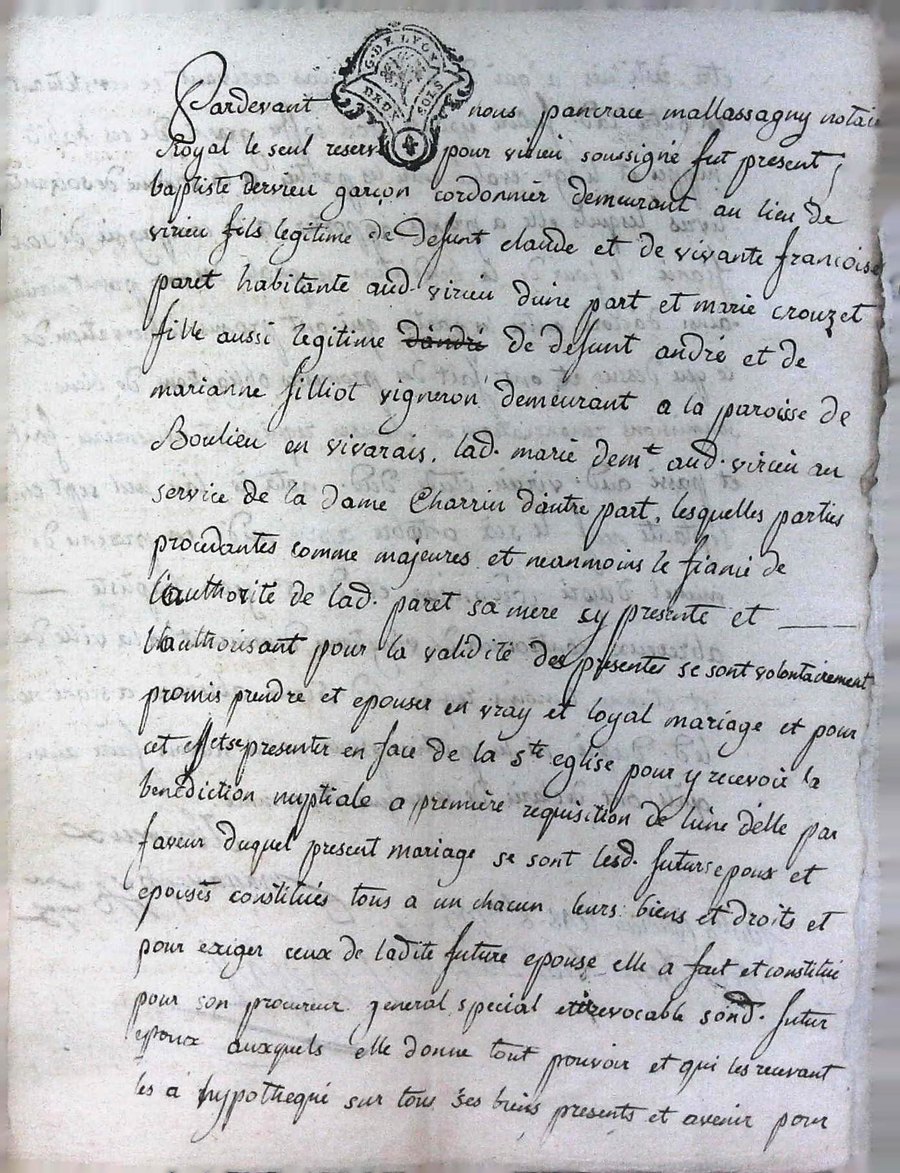 G. DE LYON
DEUX SOLS
4
Pardevant nous pancrace mallassagny notaire
Royal le seul reservé pour virieu soussigné fut present
baptiste dervieu garçon cordonnier demeurant au lieu de
virieu fils legitime de defunt claude et de vivante françoise
paret habitante aud. virieu d'une part et marie crouzet
fille aussi legitime dandré de defunt andré et de
marianne filliot vigneron demeurant a la paroisse de
Boulieu en vivarais, lad. marie demt aud. virieu au
service de la dame Charrin d'autre part, lesquelles parties
procedantes comme majeures et neanmoins le fiancé de
l'authorité de lad. paret sa mere cy presente et
l'authorisant pour la validité des presentes se sont volontairement
promis prendre et epouser en vray et loyal mariage et pour
cet effet se presenter en face de la ste eglise pour y recevoir la
benediction nuptiale a première requisition de l'une d'elle par
faveur duquel present mariage se sont lesd. futurs epoux et
epouses constitués tous a un chacun leurs biens et droits et
pour exiger ceux de ladite future epouse elle a fait et constitué
pour son procureur general special et irrevocable sond. futur
epoux auxquels elle donne tout pouvoir et qui les recevant
les a hypothequé sur tous ses biens presents et avenir pour